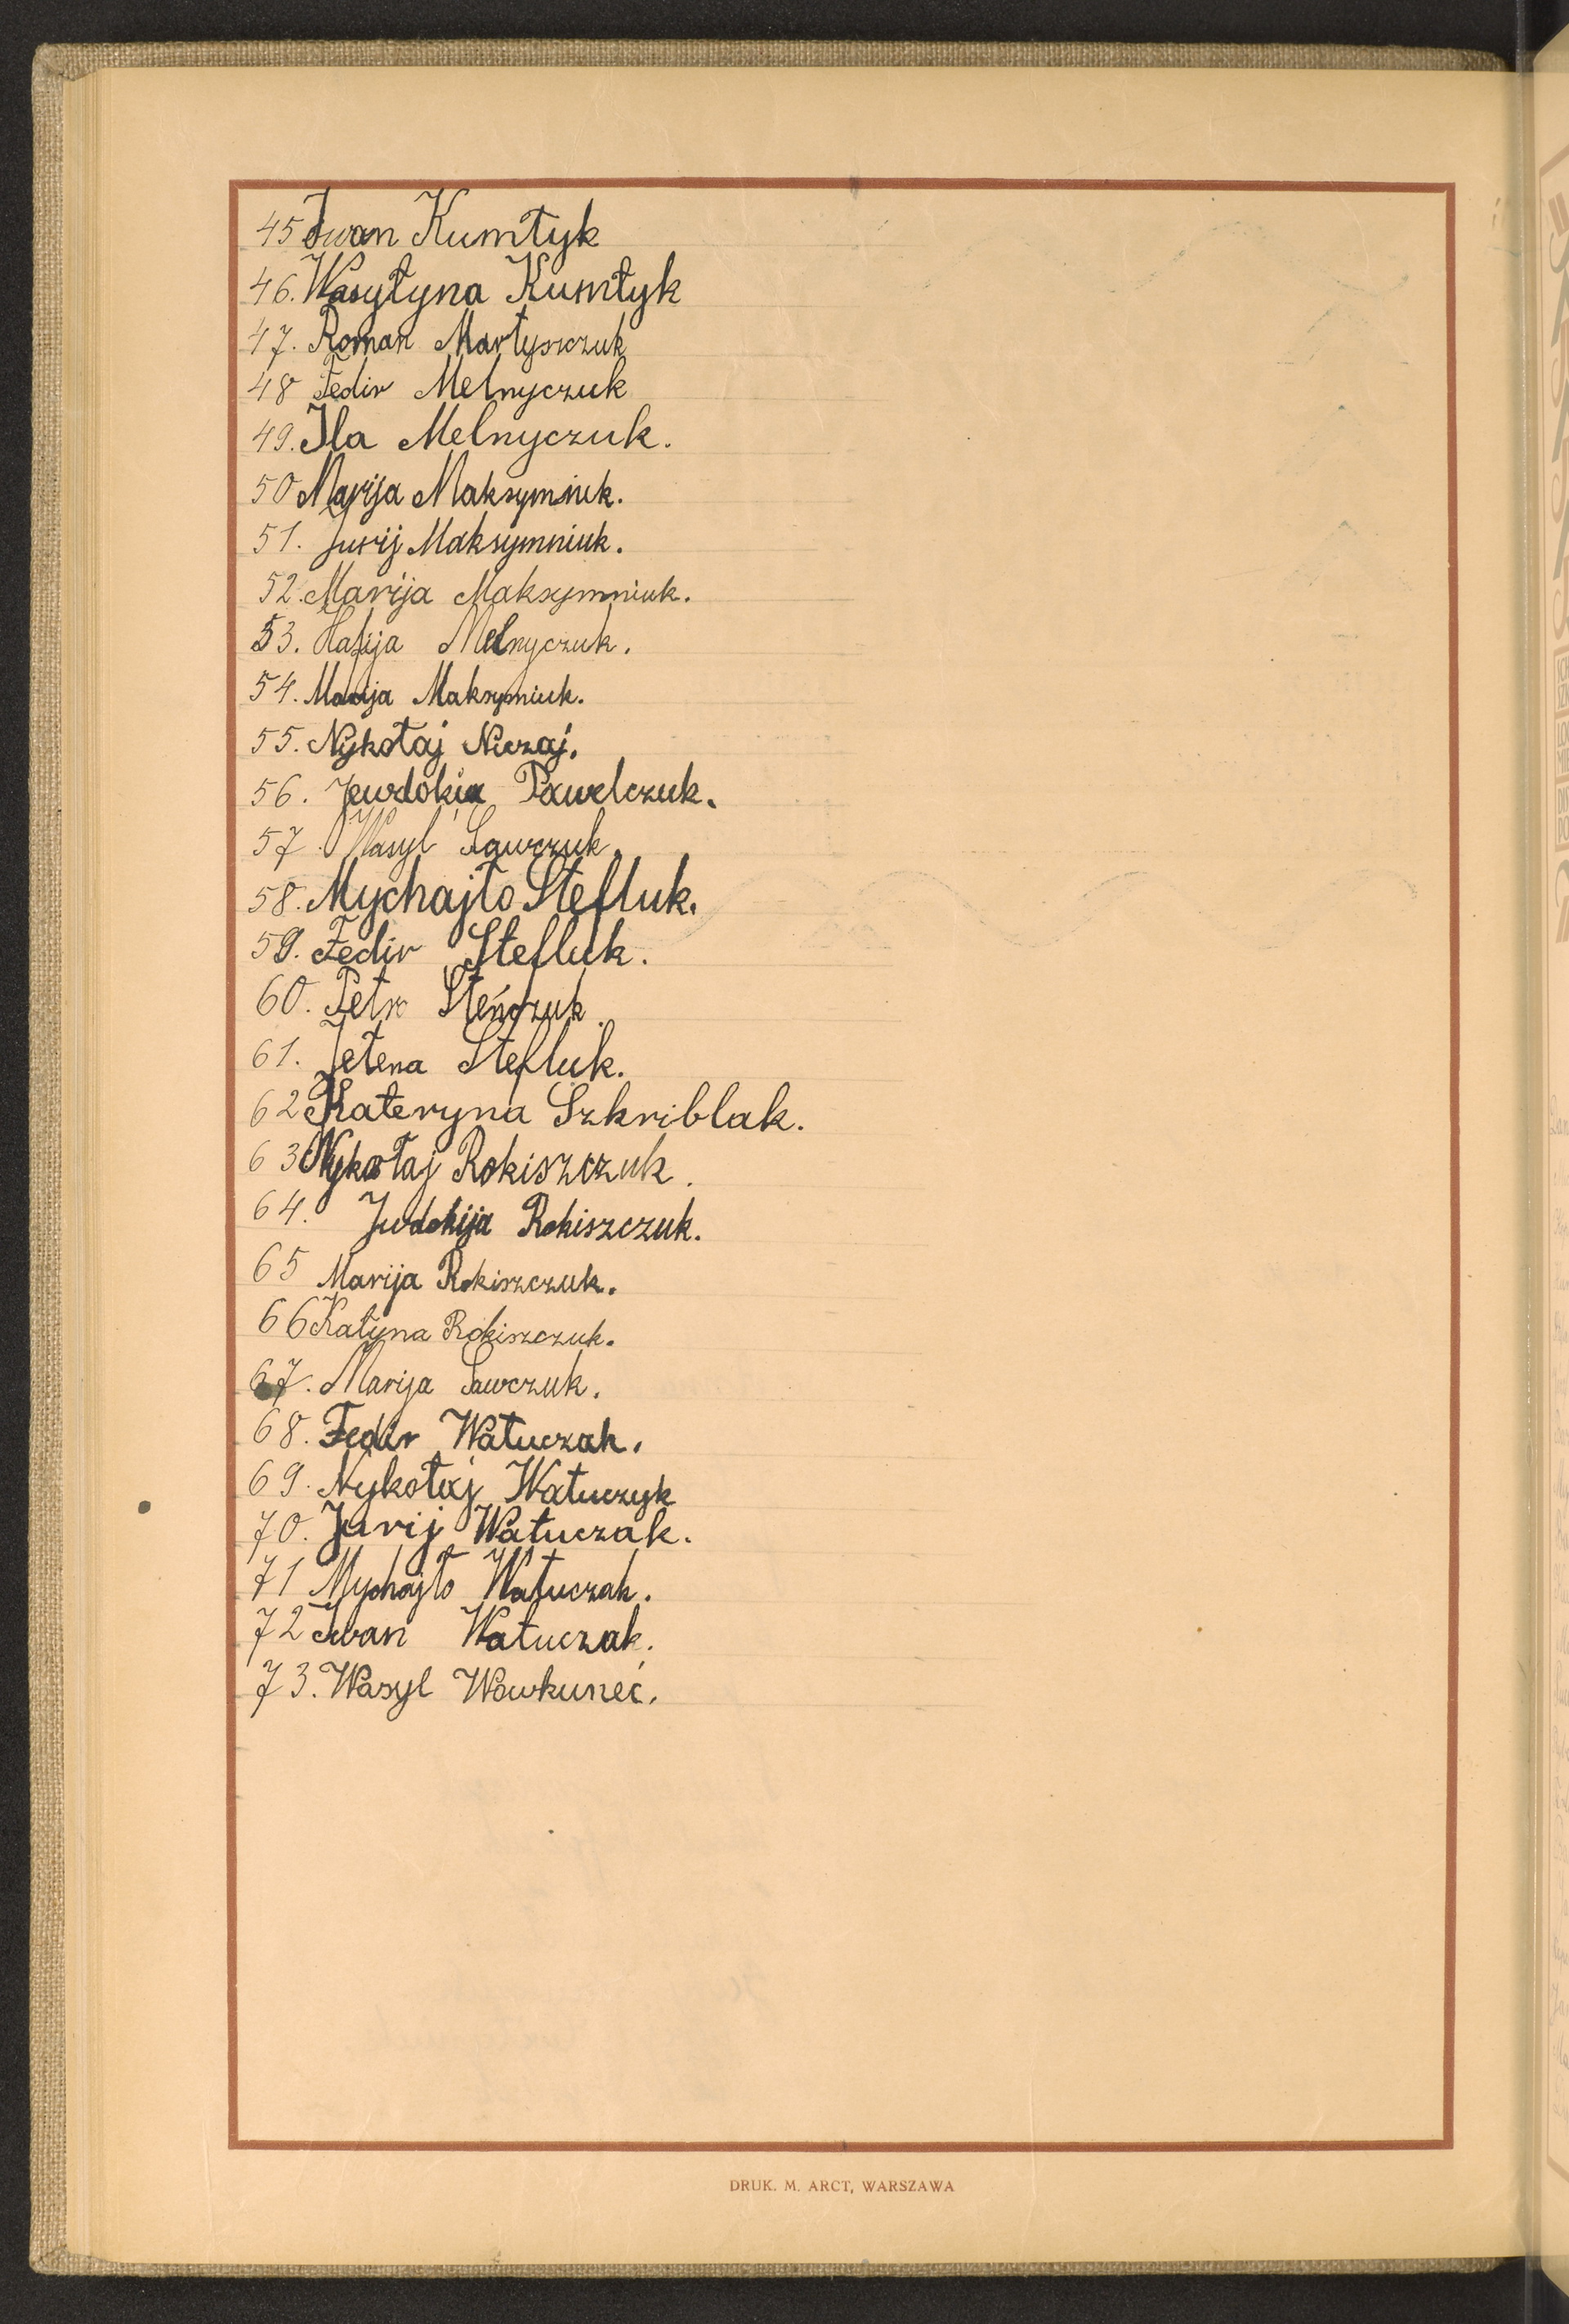 45 Iwan Kumłyk
46. Wasyłyna Kumłyk
47. Roman Martyszczuk
48 Fedir Melnyczuk
49. Ila Melnyczuk.
50 Marija Maksymiuk.
51. Jurij Maksymniuk.
52. Marija Maksymniuk.
53. Hafija Melnyczuk.
54. Marija Maksymiuk.
55. Nykołaj Niczaj.
56. Jewdokia Pawelczuk.
57. Wasyl Sawczuk.
58. Mychajło Stefluk.
59. Fedir Stefluk.
60. Petro Steńczuk.
61. Jełena Stefluk.
62 Kateryna Szkriblak.
63 Nykołaj Rokiszczuk.
64. Jwdokija Rokiszczuk.
65 Marija Rokiszczuk.
66 Kałyna Rokiszczuk.
67. Marija Sawczuk.
68. Fedir Watuczak.
69. Nykołaj Watuczyk
70. Jurij Watuczak.
71 Mychajło Watuczak.
72 Iwan Watuczak.
73. Wasyl Wowkuneć.
DRUK. M. ARCT, WARSZAWA